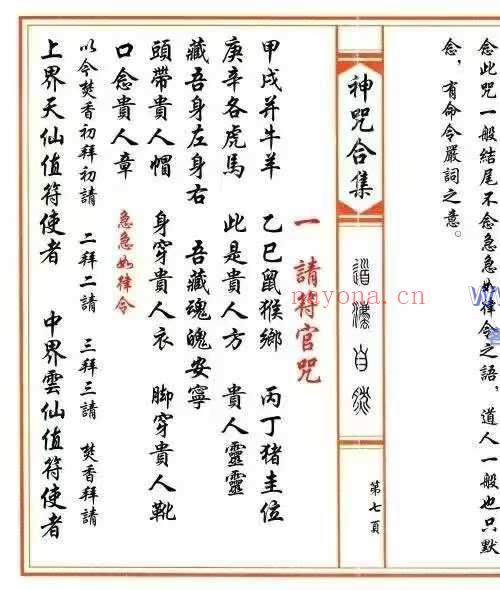 念此咒一般結尾不念急急如律令之語，道人一般也只默
念，有命令嚴詞之意。
神咒合集
道濃自然
第七頁
一 請符官咒
甲戌并牛羊 乙巳鼠猴鄉 丙丁猪圭位
庚辛各虎馬 此是貴人方 貴人靈靈
藏吾身左身右 吾藏魂魄安寧
頭帶貴人帽 身穿貴人衣 脚穿貴人靴
口念貴人章 急急如律令
以今焚香初拜初請 二拜二請 三拜三請 焚香拜請
上界天仙值符使者 中界雲仙值符使者
nayona.cn